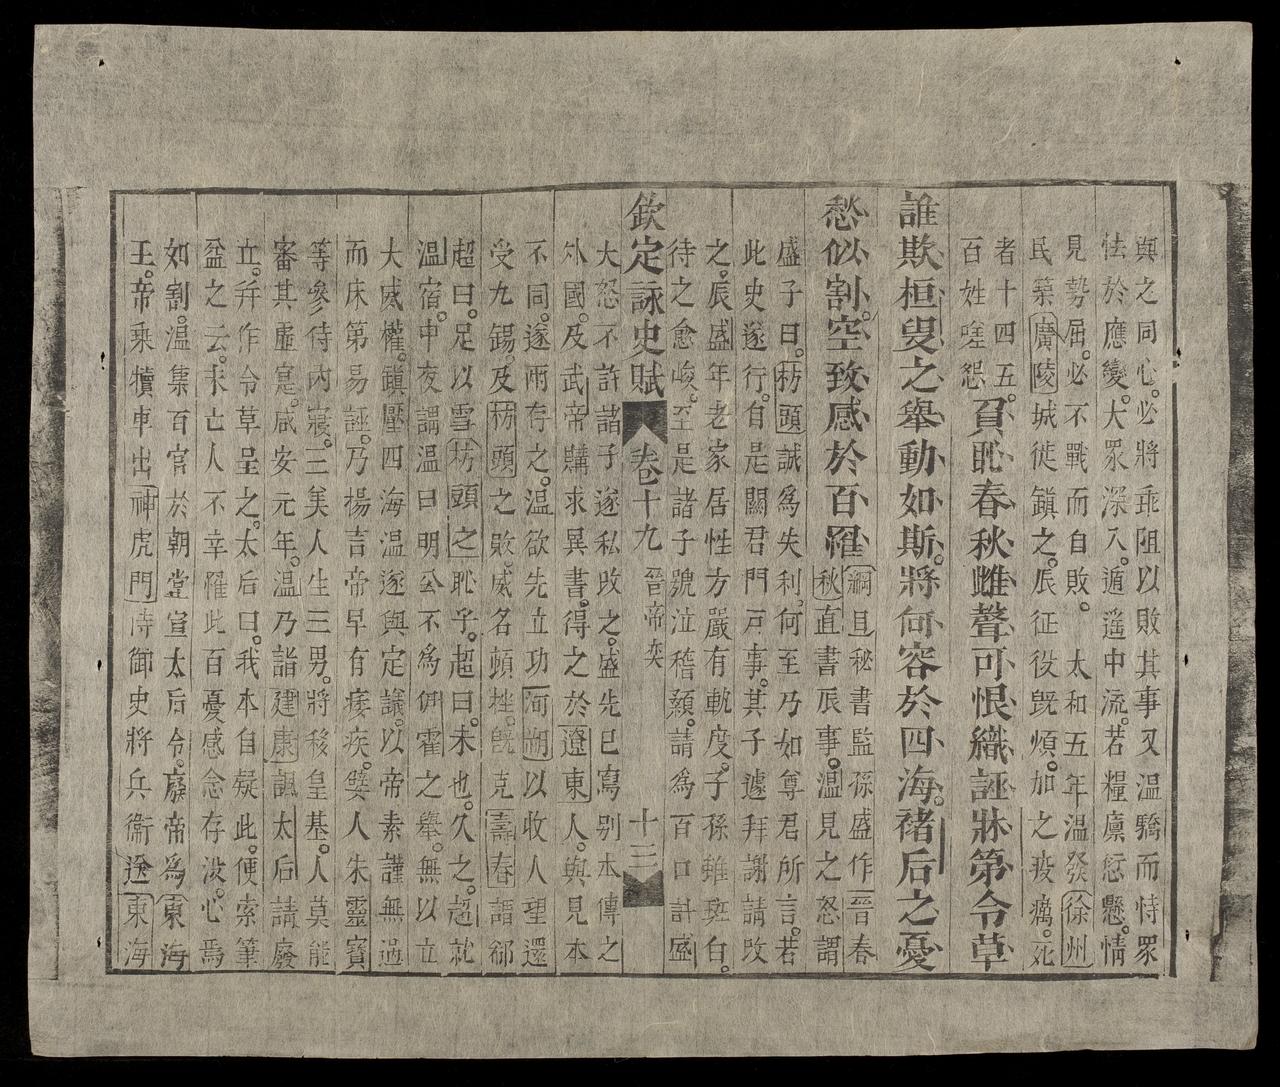 與之同心。必將乖阻以敗其事又温驕而恃眾
怯於應變。大眾深入。遁遥中流。若糧廪愆懸。情
見勢屈。必不戰而自敗。 太和五年温發徐州
民築廣陵城徙鎮之。辰征役既煩。加之疫癘。死
者十四五。
百姓嗟怨
負恥春秋雌聲可恨織誣牀第令草
誰欺桓叟之舉動如斯。將何容於四海。褚后之憂
愁似割。空致感於百罹
綱且秘書監孫盛作晉春
秋直書辰事。温見之怒謂
盛子曰。枋頭誠爲失利。何至乃如尊君所言。若
此史遂行。自是關君門戸事。其子遽拜謝請改
之。辰盛年老家居性方嚴有軌度。子孫雖斑白。
待之愈峻。至是諸子號泣稽顙。請爲百口計盛
欽定詠史賦 卷十九 晉帝奕 十三
大怒不許諸子遂私改之。盛先已寫别本傳之
外國。及武帝購求異書。得之於遼東人。與見本
不同。遂两存之。温欲先立功河朔以收人望還
受九錫。及枋頭之敗。威名頓挫。既克壽春謂郗
超曰。足以雪枋頭之恥子。超曰。未也。久之。超就
温宿。中夜謂温曰明公不爲伊霍之舉。無以立
大威權。鎮壓四海温遂與定議。以帝素謹無過
而床第易誣。乃楊吉帝早有痿疾。嬖人朱靈寶
等參侍内寢。三美人生三男。將移皇基。人莫能
審其虛寔。咸安元年。温乃詣建康諷太后請廢
立。并作令草呈之。太后曰。我本自疑此。便索筆
益之云。未亡人不幸罹此百憂感念存没。心焉
如割。温集百官於朝堂宣太后令。廢帝爲東海
王。帝乘犢車出神虎門侍御史將兵衛送東海